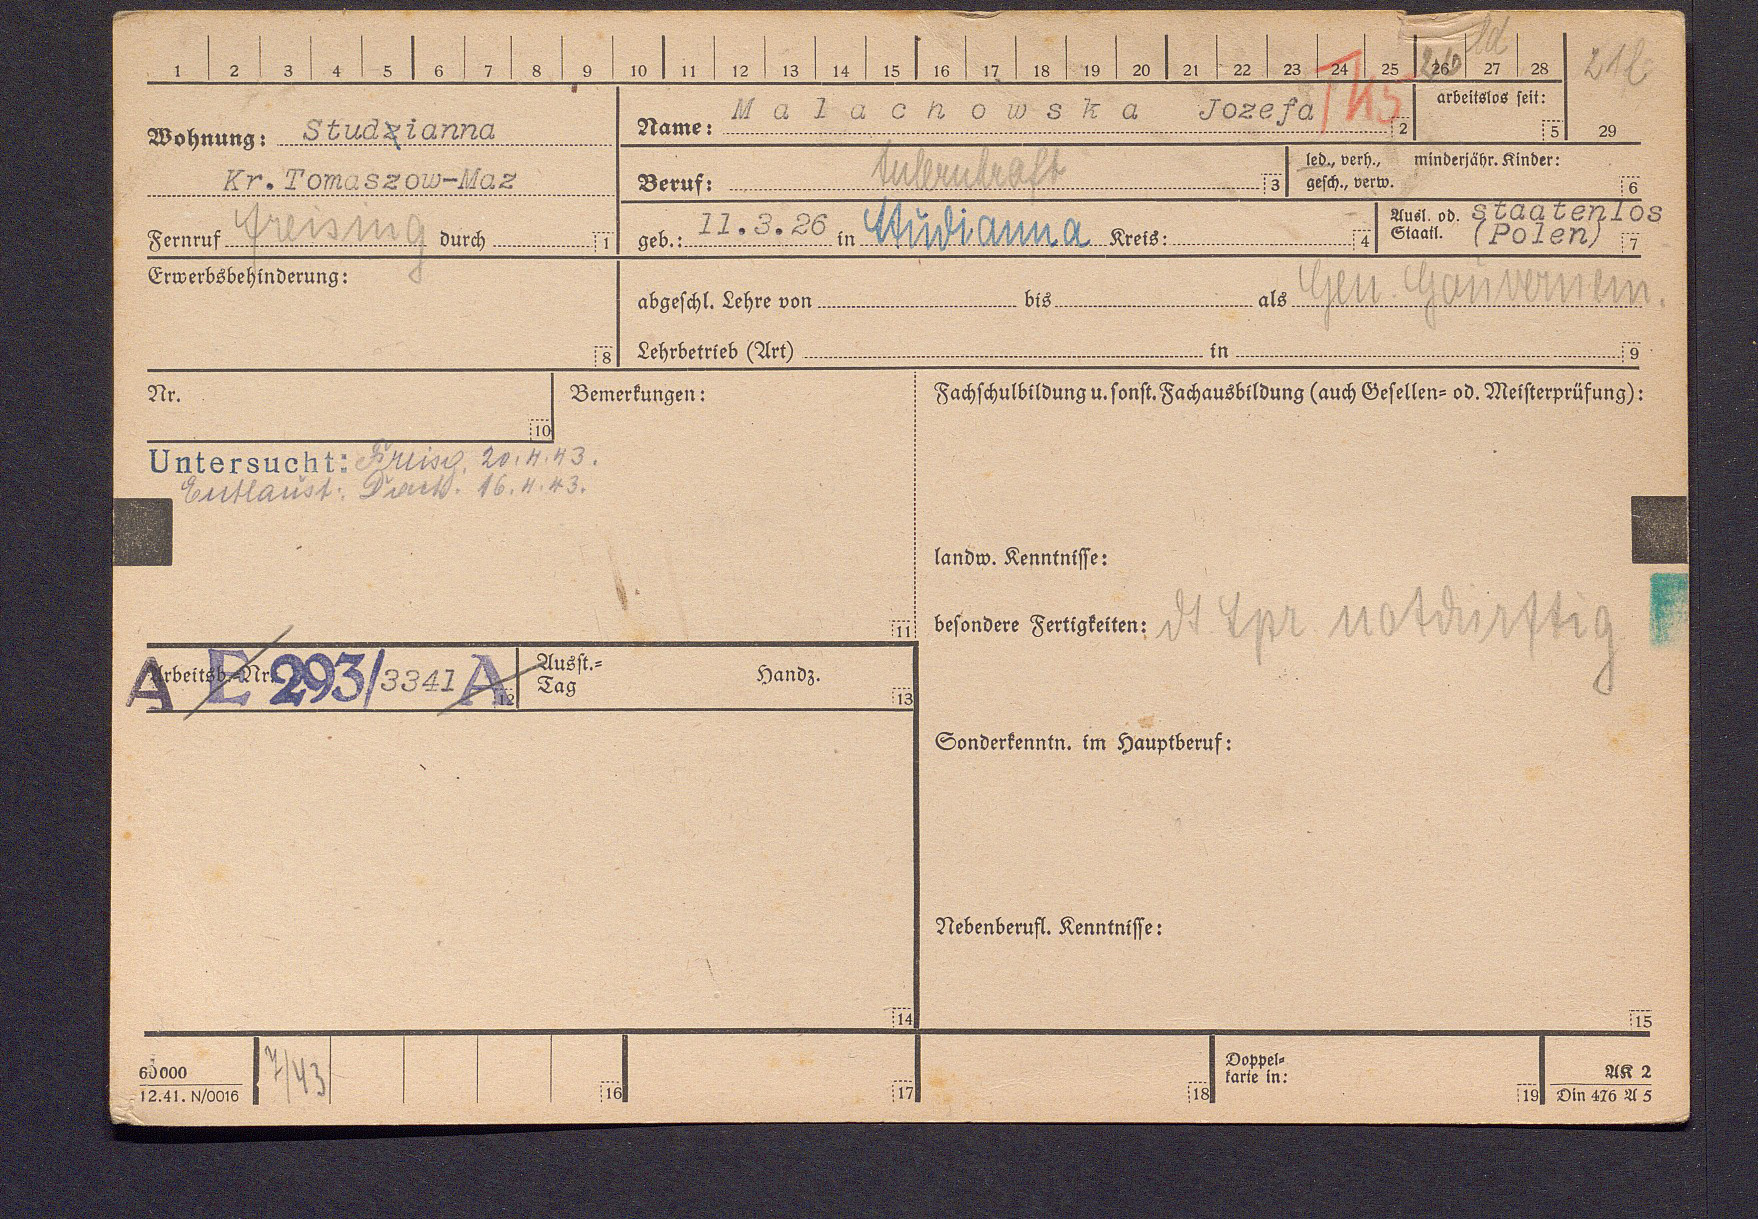 1 2 3 4 5 6 7 8 9 10 11 12 13 14 15 16 17 18 19 20 21 22 23 24 25 26 27 28
21b
29
Wohnung: Studzianna
Kr. Tomaszow-Maz
Freising
Fernruf durch 1
Name: Malachowska Jozefa 2
arbeitslos seit: 5
Beruf: 3
led., verh., gesch., verw.
minderjähr. Kinder: 6
geb.: 11.3.26 in Studianna Kreis: 4
Ausl. od. Staatl. staatenlos (Polen) 7
Erwerbsbehinderung: 8
abgeschl. Lehre von bis als Gen. Gouvernem.
Lehrbetrieb (Art) in 9
Nr. 10
Bemerkungen:
Untersucht: Freisg. 20.4.43.
Entlaust: Dach. 16.4.43.
11
Fachschulbildung u. sonst. Fachausbildung (auch Gesellen- od. Meisterprüfung):
landw. Kenntnisse:
besondere Fertigkeiten: dt Spr notdürftig
A Arbeitsb.-Nr. E 293/3341 A 12
Ausst.-Tag Handz. 13
Sonderkenntn. im Hauptberuf:
Nebenberufl. Kenntnisse:
14
15
60000
12.41. N/0016
7/43
16
17
18
Doppelkarte in: 19
AK 2
Din 476 A 5